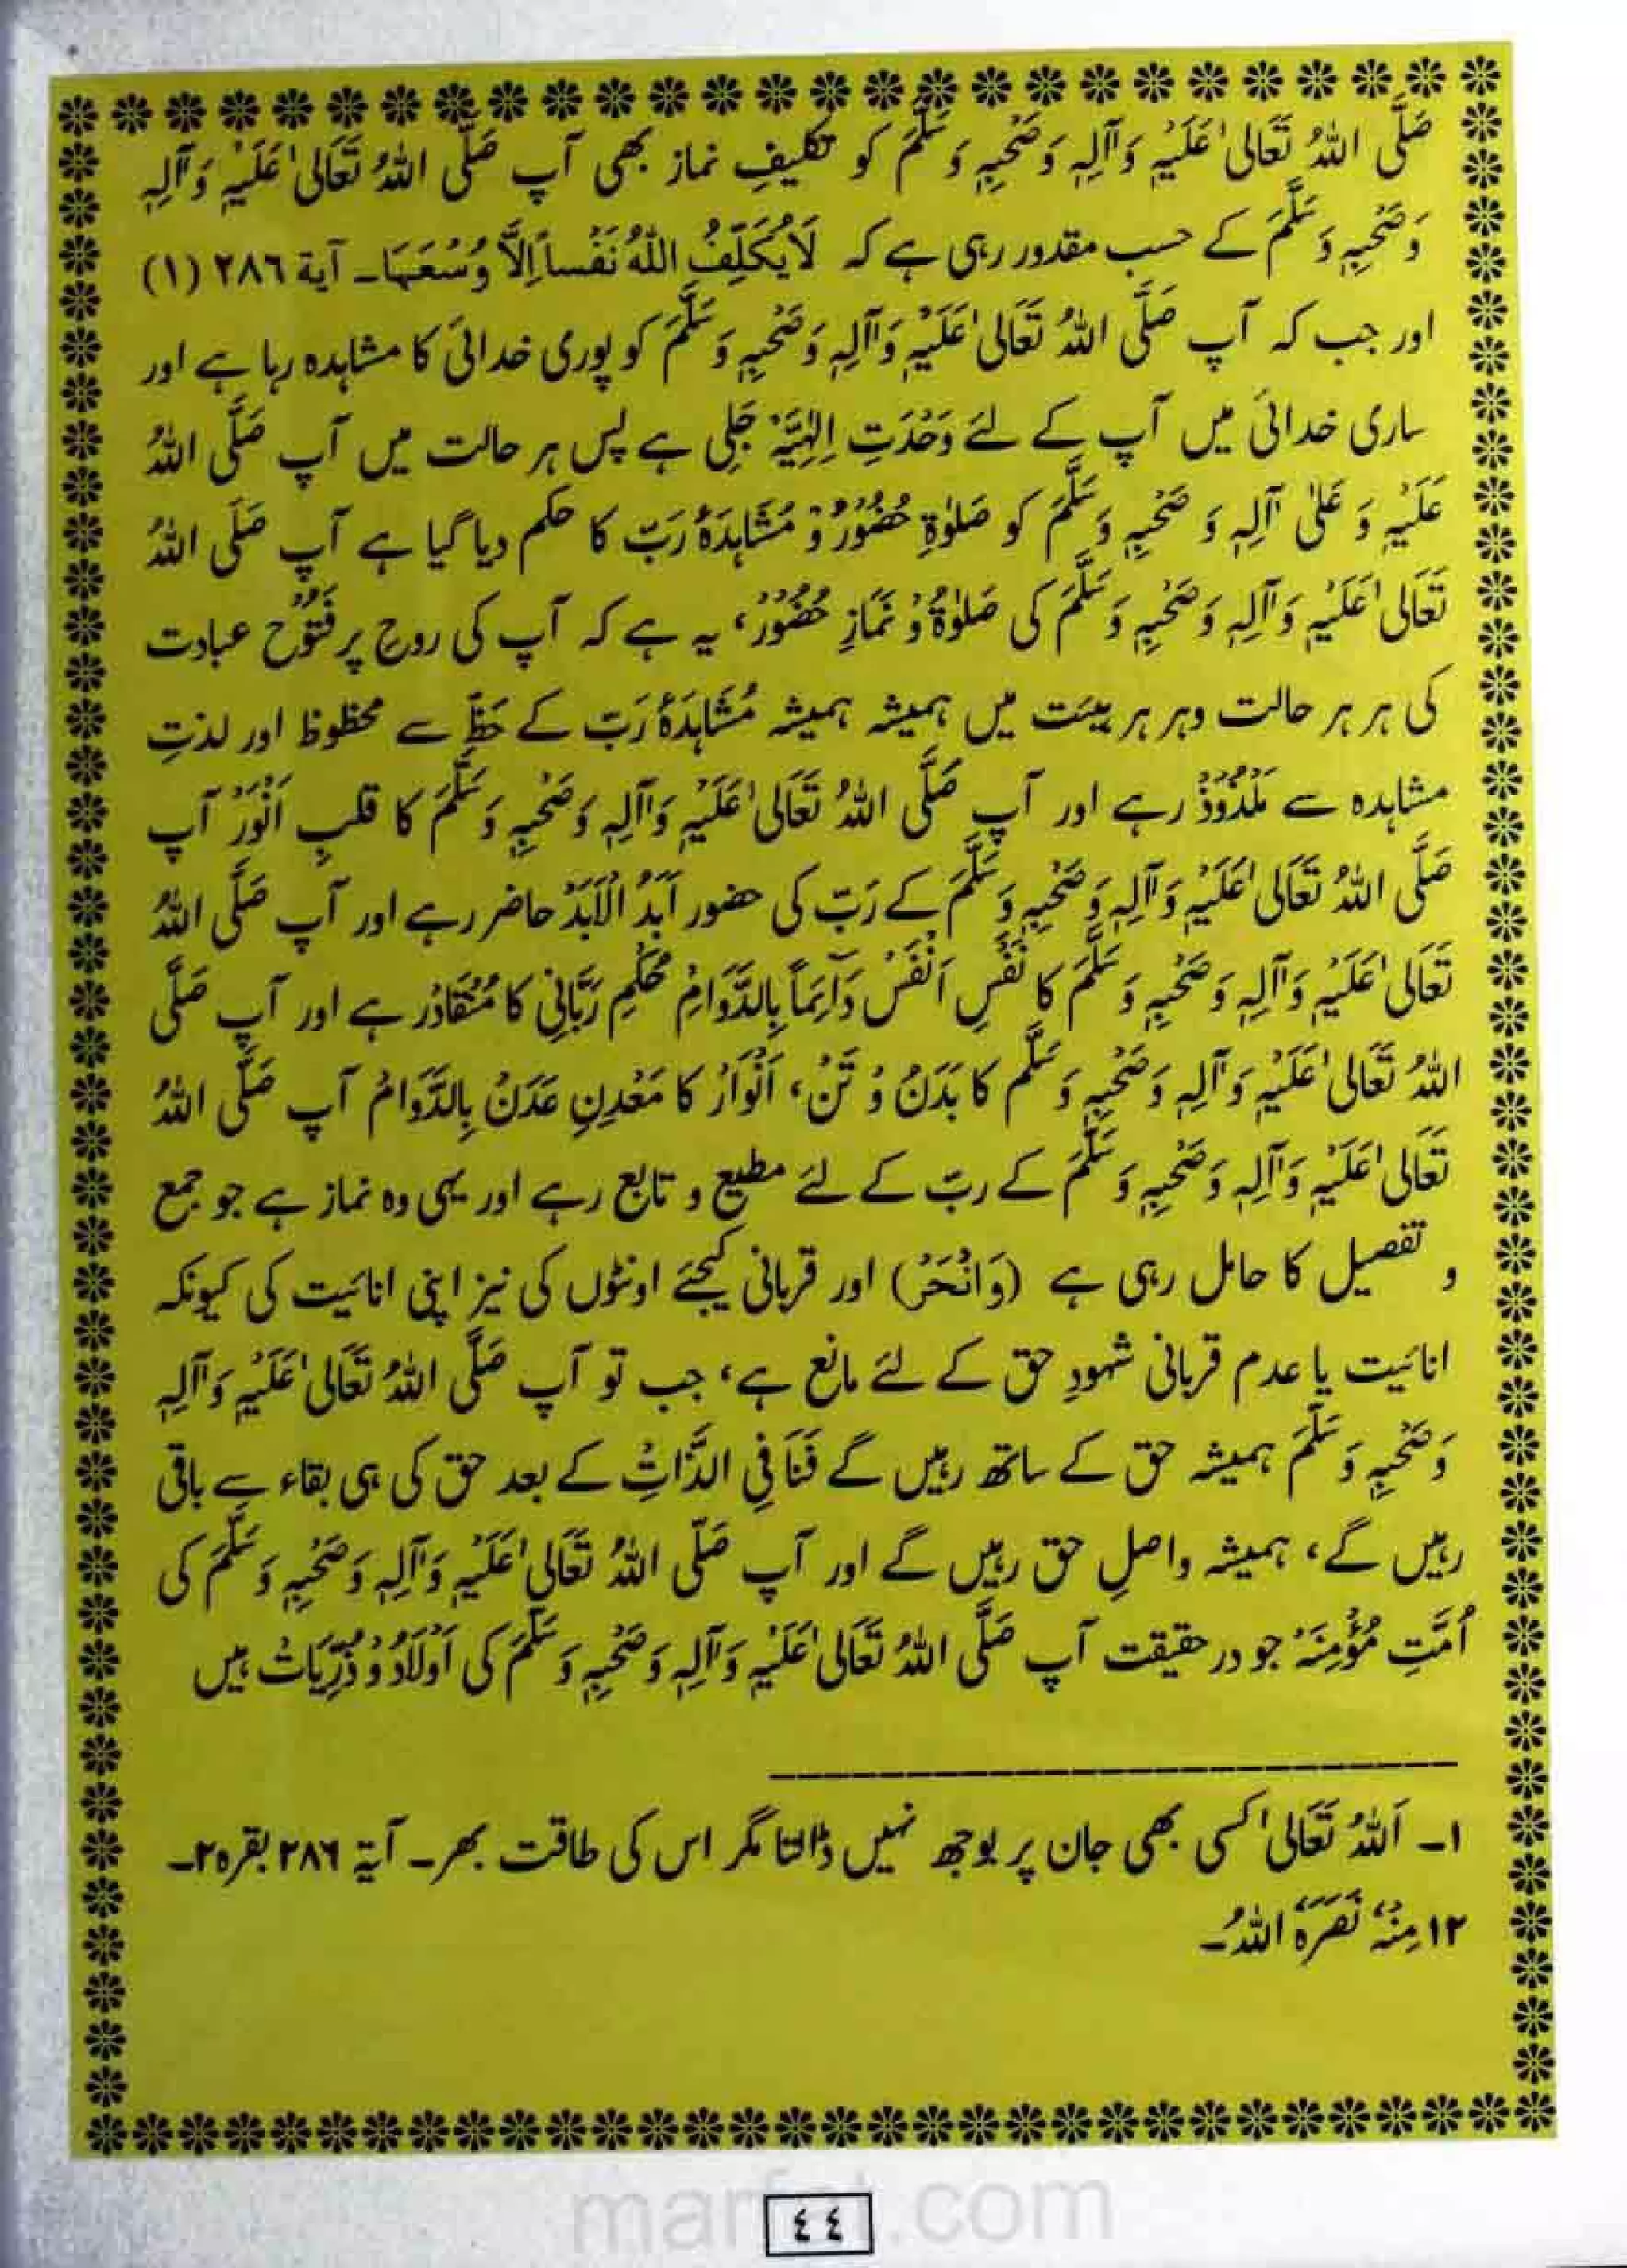 صَلَّی اللّٰہُ تَعَالیٰ عَلَیْہِ وَآلِہٖ وَصَحْبِہٖ وَسَلَّمَ کو تکلیفِ نماز بھی آپ صَلَّی اللّٰہُ تَعَالیٰ عَلَیْہِ وَآلِہٖ
وَصَحْبِہٖ وَسَلَّمَ کے حسب مقدور رہی ہے کہ لَایُکَلِّفُ اللّٰہُ نَفْساً اِلاَّ وُسْعَہَا۔ آیة ۲۸۶ (۱)
اور جب کہ آپ صَلَّی اللّٰہُ تَعَالیٰ عَلَیْہِ وَآلِہٖ وَصَحْبِہٖ وَسَلَّمَ کو پوری خدائی کا مشاہدہ رہا ہے اور
ساری خدائی میں آپ کے لئے وَحْدَتِ اِلٰہِیَّہْ جَلِی ہے پس ہر حالت میں آپ صَلَّی اللّٰہُ
عَلَیْہِ وَ عَلیٰ آلِہٖ وَ صَحْبِہٖ وَسَلَّمَ کو صَلوٰةِ حُضُوْرْ وْ مُشَاہَدَۂ رَبّ کا حکم دیا گیا ہے آپ صَلَّی اللّٰہُ
تَعَالیٰ عَلَیْہِ وَآلِہٖ وَصَحْبِہٖ وَسَلَّمَ کی صَلوٰةْ وْ نَمَازِ حُضُوْرْ، یہ ہے کہ آپ کی روحِ پر فُتُوْحْ عبادت
کی ہر ہر حالت وہر ہر ہیئت میں ہمیشہ ہمیشہ مُشَاہَدَۂ رَبّ کے حَظِّ سے محظوظ اور لذتِ
مشاہدہ سے مَلْذُوْذْ رہے اور آپ صَلَّی اللّٰہُ تَعَالیٰ عَلَیْہِ وَآلِہٖ وَصَحْبِہٖ وَسَلَّمَ کا قلبِ اَنْوَرْ آپ
صَلَّی اللّٰہُ تَعَالیٰ عَلَیْہِ وَآلِہٖ وَصَحْبِہٖ وَسَلَّمَ کے رَبّ کی حضور اَبَدُ الْاَبَدْ حاضر رہے اور آپ صَلَّی اللّٰہُ
تَعَالیٰ عَلَیْہِ وَآلِہٖ وَصَحْبِہٖ وَسَلَّمَ کا نَفْسِ اَنْفَسْ دَآئِمَاً بِالدَّوَامْ حُکْمِ رَبَّانِی کا مُنْقَادْ رہے اور آپ صَلَّی
اللّٰہُ تَعَالیٰ عَلَیْہِ وَآلِہٖ وَصَحْبِہٖ وَسَلَّم کا بَدَنْ وْ تَنْ، اَنْوَارْ کا مَعْدِنِ عَدَنْ بِالدَّوَامْ آپ صَلَّی اللّٰہُ
تَعَالیٰ عَلَیْہِ وَآلِہٖ وَصَحْبِہٖ وَسَلَّمَ کے ربّ کے لئے مطیع و تابع رہے اور یہی وہ نماز ہے جو جمع
و تفصیل کا حامل رہی ہے (وَانْحَرْ) اور قربانی کیجئے اونٹوں کی نیز اپنی انائیت کی کیونکہ
انائیت یا عدم قربانی شہودِ حق کے لئے مانع ہے، جب تو آپ صَلَّی اللّٰہُ تَعَالیٰ عَلَیْہِ وَآلِہٖ
وَصَحْبِہٖ وَسَلَّمَ ہمیشہ حق کے ساتھ رہیں گے فَنَا فِی الذَّاتِ کے بعد حق کی ہی بقاء سے باقی
رہیں گے، ہمیشہ واصلِ حق رہیں گے اور آپ صَلّی اللّٰہُ تَعَالیٰ عَلَیْہِ وَآلِہٖ وَصَحْبِہٖ وَسَلَّمَ کی
اُمَّتِ مُؤْمِنَہْ جو در حقیقت آپ صَلَّی اللّٰہُ تَعَالیٰ عَلَیْہِ وَآلِہٖ وَصَحْبِہٖ وَسَلَّمَ کی اَوْلَادْ وْ ذُرِّیَاتْ ہیں
۱۔ اَللّٰہُ تَعَالیٰ کسی بھی جان پر بوجھ نہیں ڈالتا مگر اس کی طاقت بھر۔ آیة ۲۸۶ بقرہ۲۔
۱۲ مِنْہُ نَصَرَہُ اللّٰہُ۔
٤٤